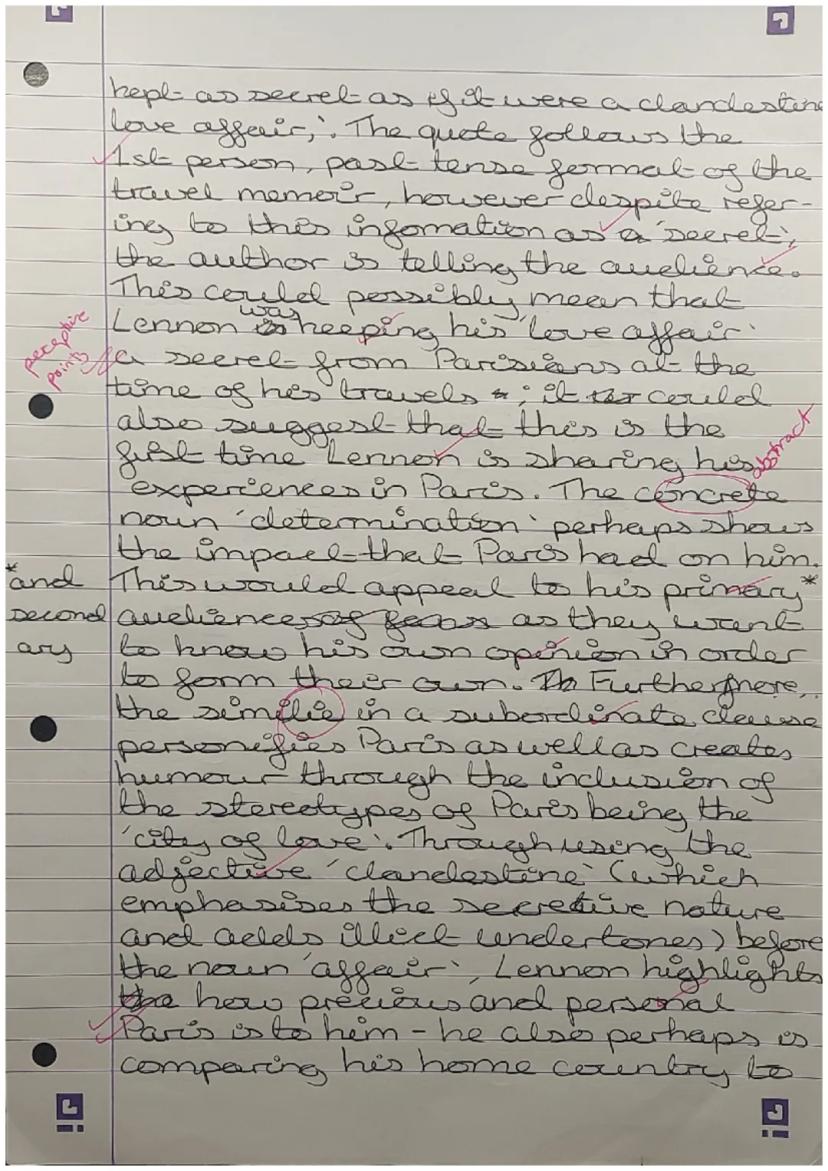 kept as secret as if it were a clandestine
love affair,'. The quote follows the
1st person, past tense format of the
travel memoir, however despite refer-
ing to this infomation as a 'secret',
the author is telling the audience.
This could possibly mean that
was
Lennon is keeping his 'love affair'
perceptive
points
a secret from Parisians at the
time of his travels ; it could
also suggest that this is the
first time Lennon is sharing his
abstract
experiences in Paris. The concrete
noun 'determination' perhaps shows
the impact that Paris had on him.
*and
second
ary
This would appeal to his primary*
audiences as they want
to know his own opinion in order
to form their own. Th Furthermore,
the similie in a subordinate clause
personifies Paris as well as creates
humour through the inclusion of
the stereotypes of Paris being the
'city of love'. Through using the
adjective 'clandestine' (which
emphasises the secretive nature
and adds illict undertones) before
the noun 'affair', Lennon highlights
the how precious and personal
Paris is to him - he also perhaps is
comparing his home country to